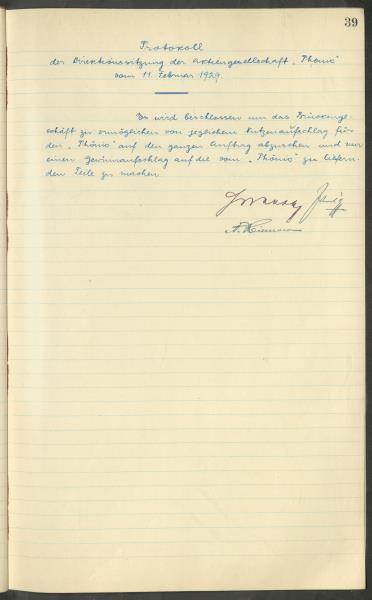 39
Protokoll
der Direktionssitzung der Aktiengesellschaft „Phönix“
vom 11. Februar 1929
Es wird beschlossen um das
schäft zu ermöglichen von jeglichem Nutzenaufschlag für
den „Phönix“ auf den ganzen Auftrag abzusehen und nur
einen Gewinnaufschlag auf die vom „Phönix“ zu liefern-
den Teile zu machen